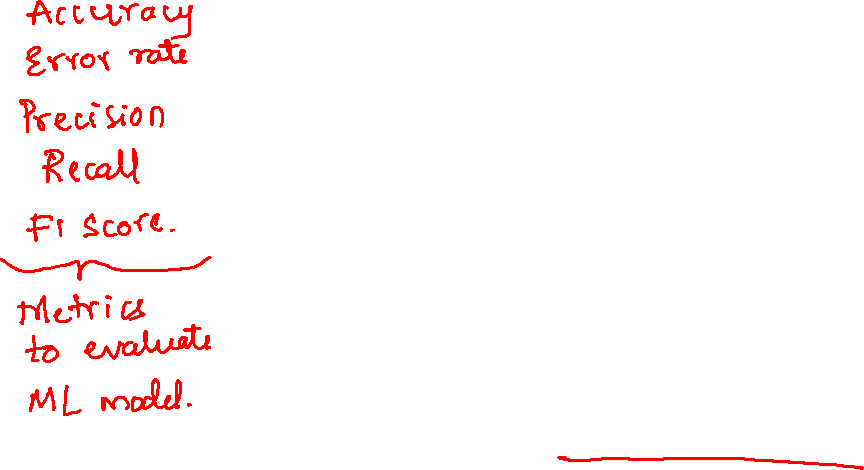 Accuracy
Error rate
Precision
Recall
F1 score.
Metrics
to evaluate
ML model.